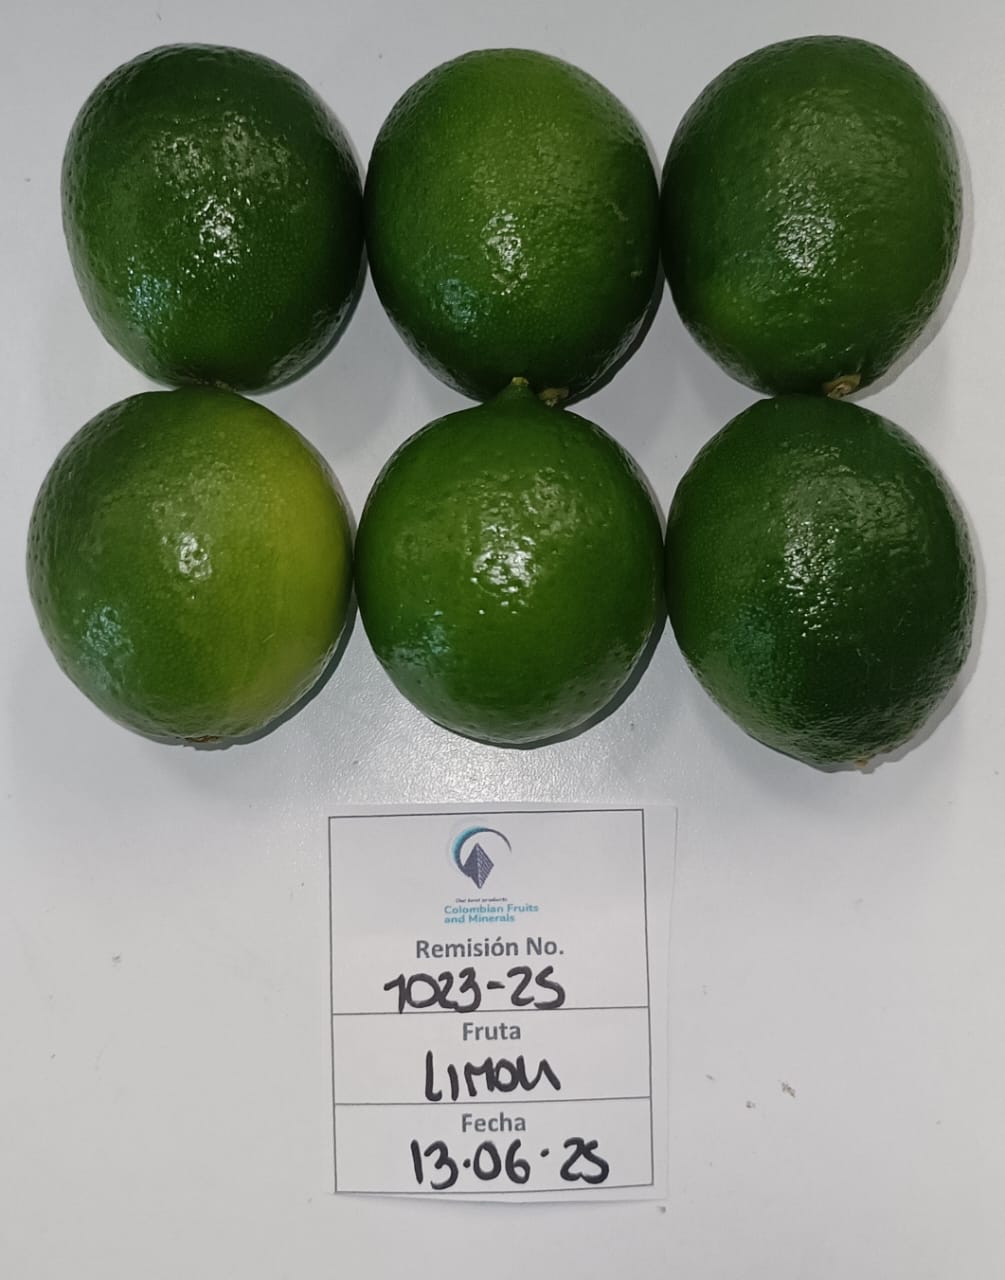 Our best products
Colombian Fruits
and Minerals
Remisión No.
1023-25
Fruta
LIMON
Fecha
13·06·25